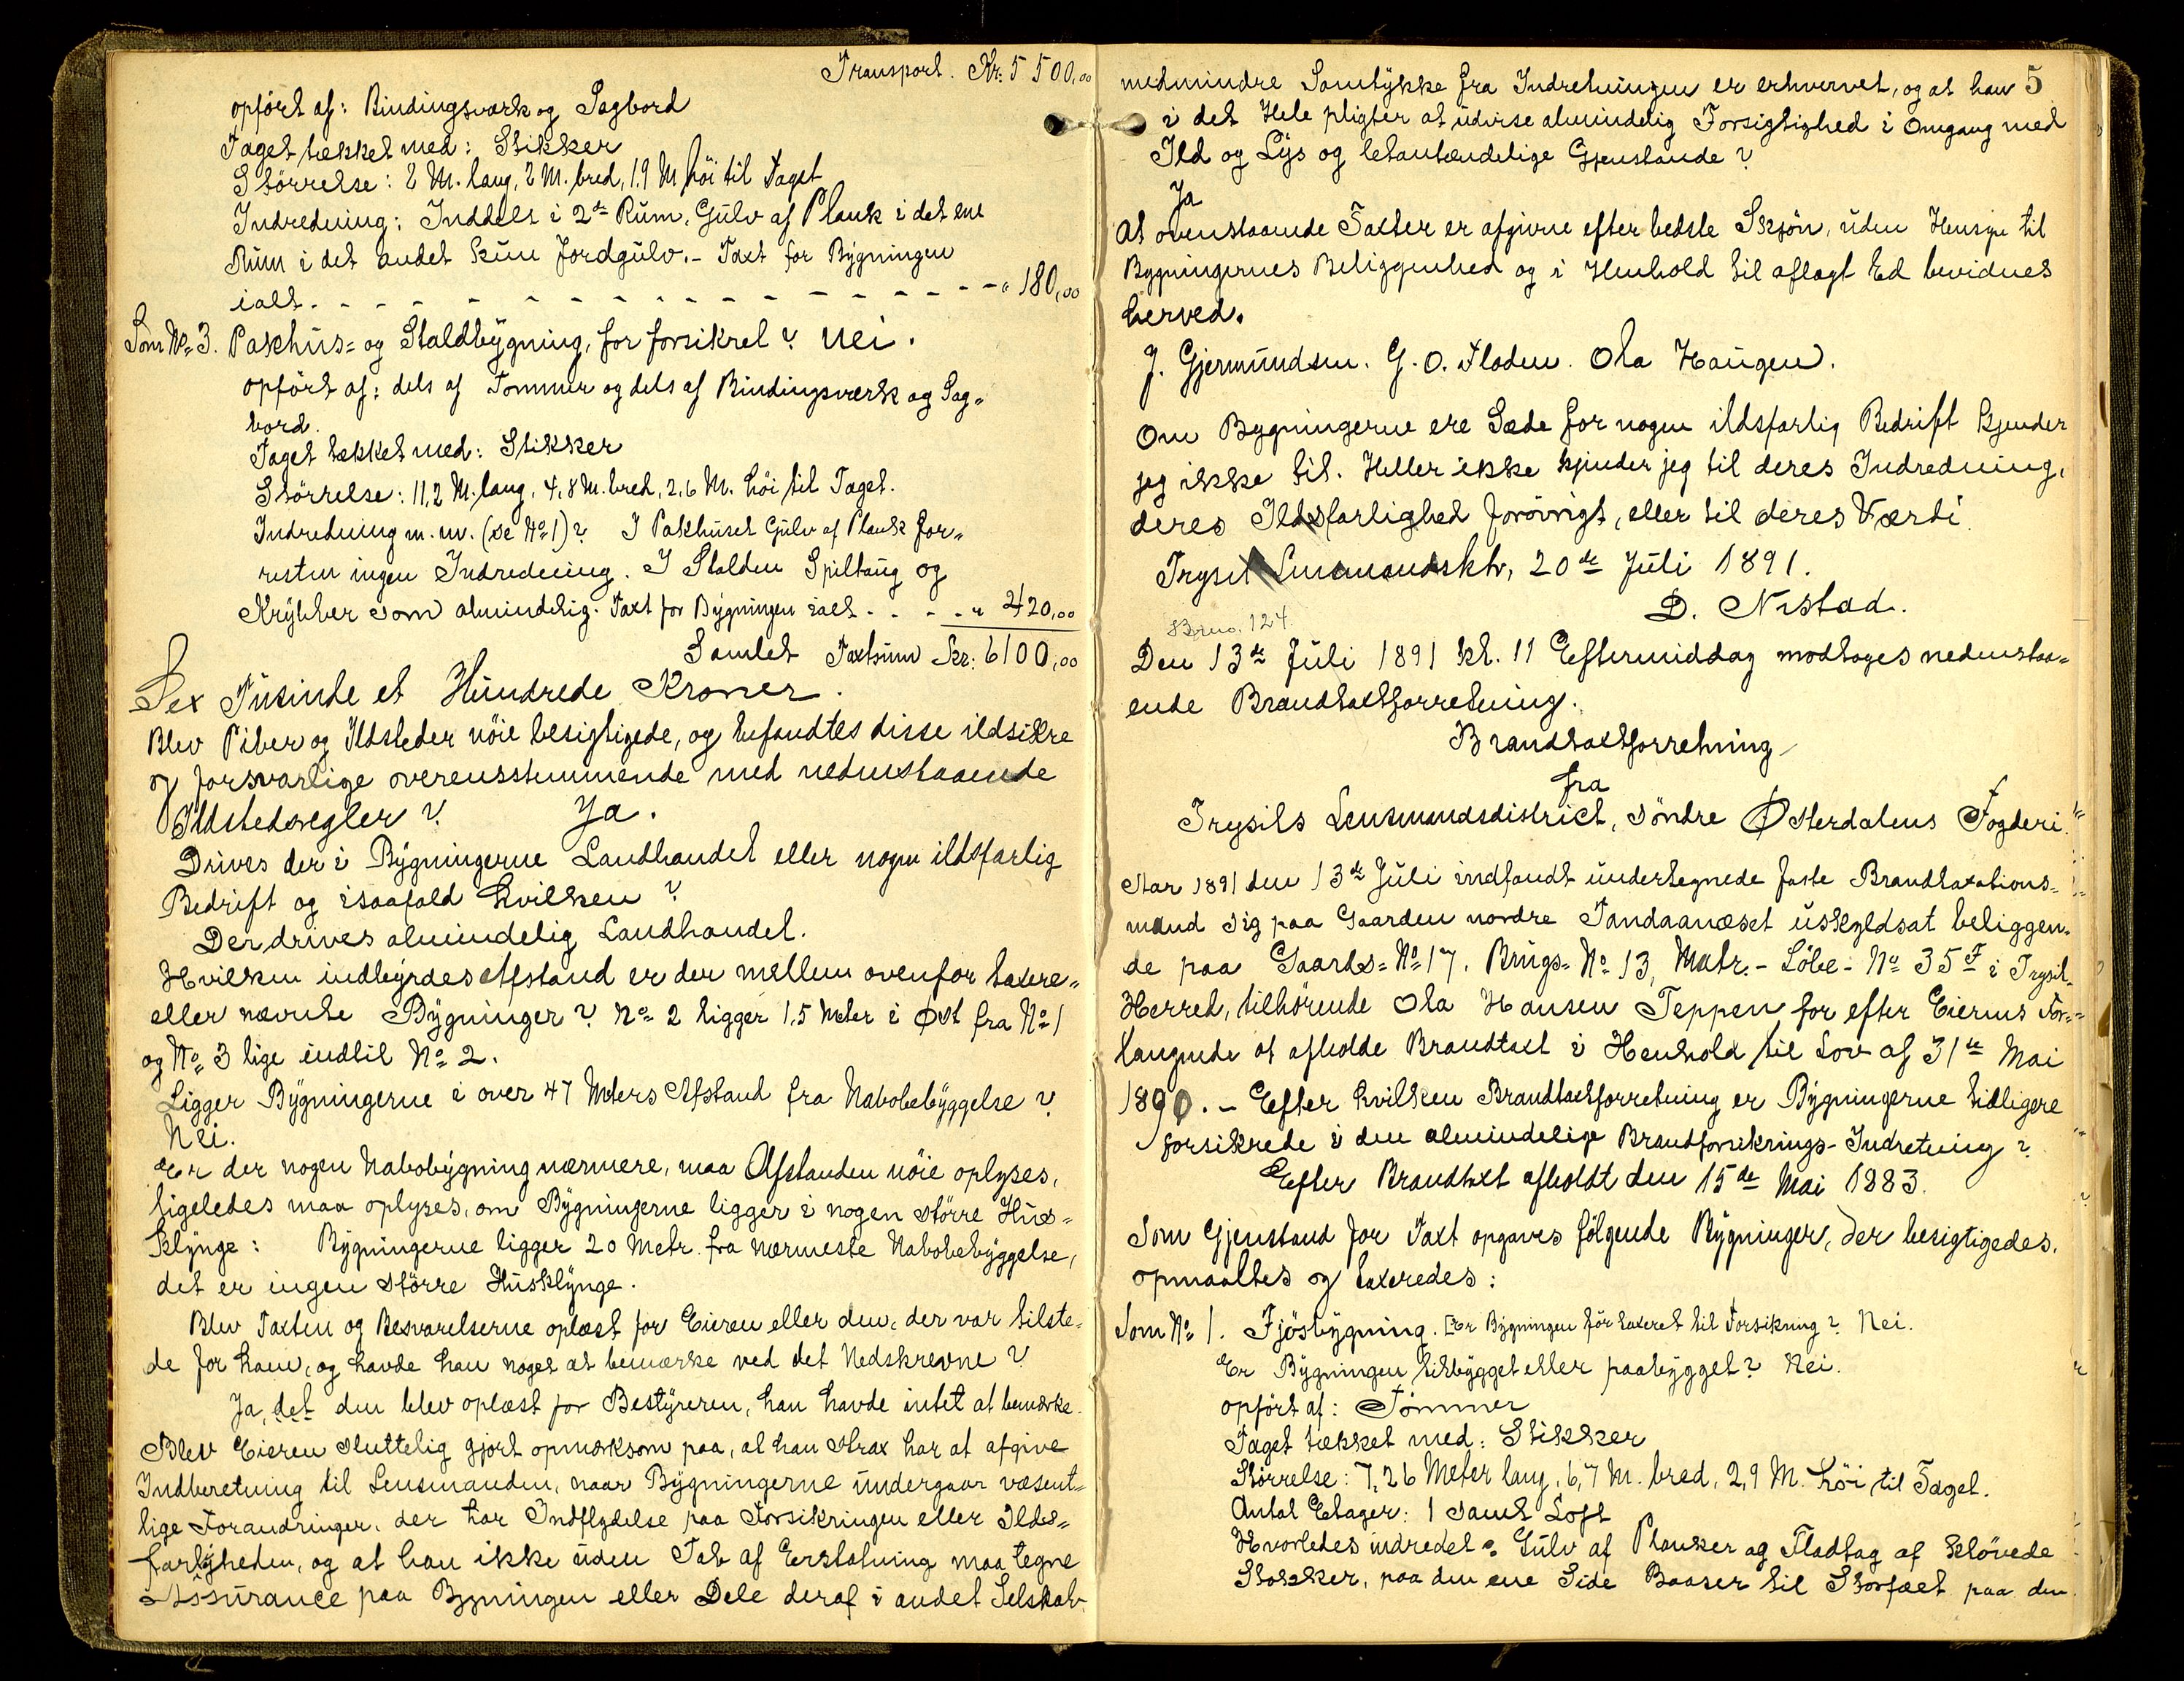 Transport. Kr: 5 500,00
opført af: Bindingsværk og Sagbord
Taget tækket med: Stikker
Størrelse: 8 M. lang, 2 M. bred, 1.9 M høi til Taget
Indredning: Inddelt i 2de Rum, Gulv af Plank i det ene
Rum i det andet kun Jordgulv. - Taxt for Bygningen
ialt - - - - - - - - - - - - - - - - „ 180,00
Som No 3. Pakhus- og Staldbygning, før forsikret? nei.
opført af: dels af Tømmer og dels af Bindingsværk og Sag-
bord.
Taget tækket med: Stikker
Størrelse: 11,2 M. lang, 4,8 M. bred, 2,6 M. høi til Taget.
Indredning m. m. (se No 1)? I Pakhuset Gulv af Plank for-
resten ingen Indredning. I Stalden Spiltaug og
Krybber som almindelig. Taxt for Bygningen ialt - - - - „ 420,00
Samlet Taxtsum Kr: 6100,00
Sex Tusinde et Hundrede Kroner.
Blev Piber og Ildsteder nöie besigtigede, og befandtes disse ildsikre
og forsvarlige overensstemmende med nedenstaaende
Ildstedsregler? Ja.
Drives der i Bygningerne Landhandel eller nogen ildsfarlig
Bedrift og isaafald hvilken?
Der drives almindelig Landhandel.
Hvilken indbyrdes Afstand er der mellem ovenfor taxere-
eller nævnte Bygninger? No 2 ligger 1,5 Meter i Øst fra No 1
og No 3 lige indtil No 2.
Ligger Bygningerne i over 47 Meters Afstand fra Nabobebyggelse?
Nei.
Er der nogen Nabobygning nærmere, maa Afstanden nöie oplyses,
ligeledes maa oplyses, om Bygningerne ligger i nogen större Hus-
klynge: Bygningerne ligger 20 Metr. fra nærmeste Nabobebyggelse,
det er ingen större Husklynge.
Blev Taxten og Besvarelserne oplæst for Eieren eller den, der var tilste-
de for ham, og havde han noget at bemærke ved det Nedskrevne?
Ja, det den blev oplæst for Bestyreren, han havde intet at bemærke.
Blev Eieren sluttelig gjort opmærksom paa, at han strax har at afgive
Indberetning til Lensmanden, naar Bygningerne undergaar væsent-
lige Forandringer, der har Indflydelse paa Forsikringen eller Ilds-
farligheden, og at han ikke uden Tab af Erstatning maa tegne
Assurance paa Bygningen eller Dele deraf i andet Selskab
5
medmindre Samtykke fra Indretningen er erhvervet, og at han
i det Hele pligter at udvise almindelig Forsigtighed i Omgang med
Ild og Lys og letantændelige Gjenstande?
Ja
At ovenstaaende Taxter er afgivne efter bedste Skjön, uden Hensyn til
Bygningernes Beliggenhed og i Henhold til aflagt Ed bevidnes
herved.
J. Gjermundsen. G. O. Floden. Ola Haugen.
Om Bygningerne ere Sæde for nogen ildsfarlig Bedrift kjender
jeg ikke til. Heller ikke kjender jeg til deres Indredning,
deres Ildsfarlighed forövrigt, eller til deres Værdi.
Trysil Lensmandsktr, 20de Juli 1891.
D. Nestad.
Brno. 124.
Den 13de Juli 1891 kl. 11 Eftermiddag modtoges nedenstaa-
ende Brandtaxtforretning.
Brandtaxtforretning
fra
Trysils Lensmandsdistrict, söndre Østerdalens Fogderi.
Aar 1891 den 13de Juli indfandt undertegnede faste Brandtaxations-
mænd sig paa Gaarden nordre Tandaanæset uskyldsat beliggen-
de paa Gaards-No 17, Brugs-No 13, Matr.-Löbe-No 35F i Trysil
Herred, tilhörende Ola Hansen Teppen for efter Eierens For-
langende at afholde Brandtaxt i Henhold til Lov af 31te Mai
1890. - Efter hvilken Brandtaxtforretning er Bygningerne tidligere
forsikrede i den almindelige Brandforsikrings-Indretning?
Efter Brandtaxt afholdt den 15de Mai 1883.
Som Gjenstand for Taxt opgaves fölgende Bygninger, der besigtigedes,
opmaaltes og taxeredes:
Som No 1. Fjösbygning. Er Bygningen för taxeret til Forsikring? Nei.
Er Bygningen tilbygget eller paabygget? Nei.
opfört af: Tömmer
Taget tækket med: Stikker
Störrelse: 7,26 Meter lang, 6,7 M. bred, 2,9 M. höi til Taget.
Antal Etager: 1 samt Loft
Hvorledes indredet: Gulv af Planker og Fladtag af klövede
Stokker, paa den ene Side Baaser til Storfæet paa den